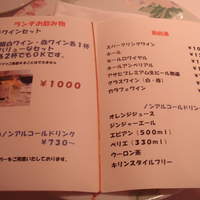 ランチお飲み物
ワインセット
白ワイン・赤ワイン各1杯
バリューなセット
2杯でもOKです。
¥1000
ノンアルコールドリンク
¥730〜
スパークリングワイン
キール
キールロワイヤル
キールアンペリアル
アサヒプレミアム生ビール熟撰
グラスワイン（白・赤）
カラフェワイン
ノンアルコールドリンク
オレンジジュース
ジンジャーエール
エビアン（500ml）
ペリエ（330ml）
ウーロン茶
キリンスタイルフリー